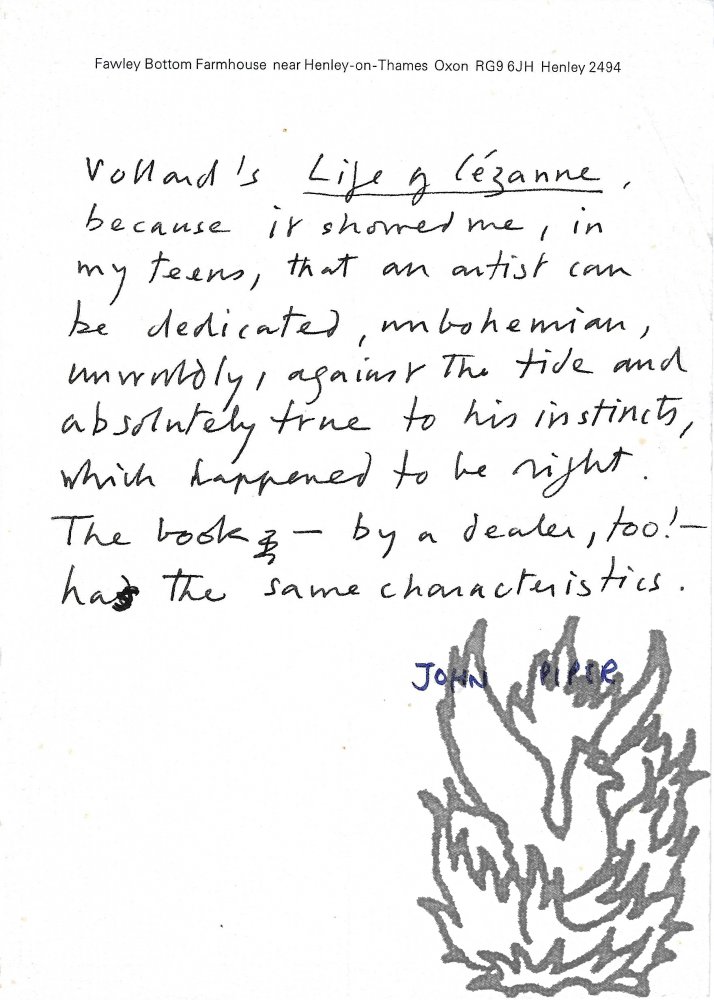 Fawley Bottom Farmhouse near Henley-on-Thames Oxon RG9 6JH Henley 2494
Vollard's Life of Cézanne,
because it showed me, in
my teens, that an artist can
be dedicated, unbohemian,
unworldly, against the tide and
absolutely true to his instincts,
which happened to be right.
The book – by a dealer, too! –
has the same characteristics.
JOHN PIPER